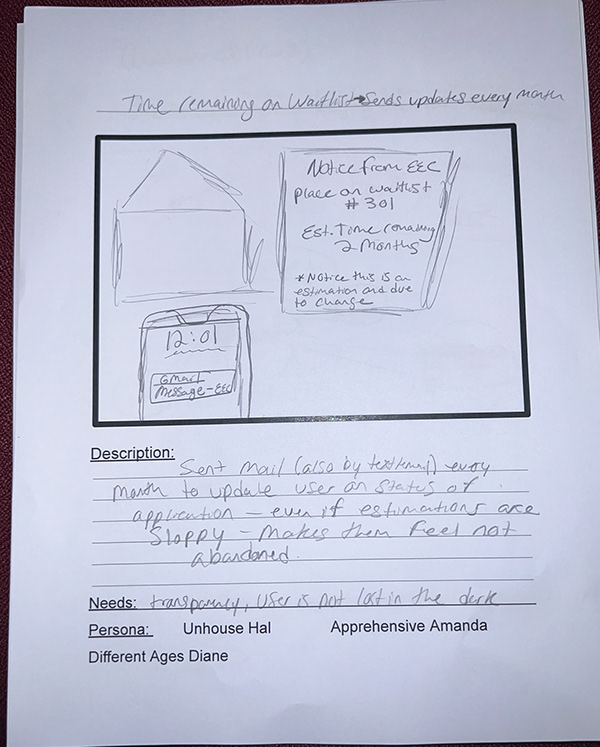 Time remaining on Waitlist → Sends updates every month
Notice from EEC
Place on waitlist
# 301
Est. Time remaining
2 Months
* Notice this is an
estimation and due
to change
12:01
Gmail
Message - EEC
Description:
Sent mail (also by text/email) every
month to update user on status of
application – even if estimations are
Sloppy – makes them feel not
abandoned.
Needs: transparency, user is not lost in the dark
Persona: Unhouse Hal Apprehensive Amanda
Different Ages Diane